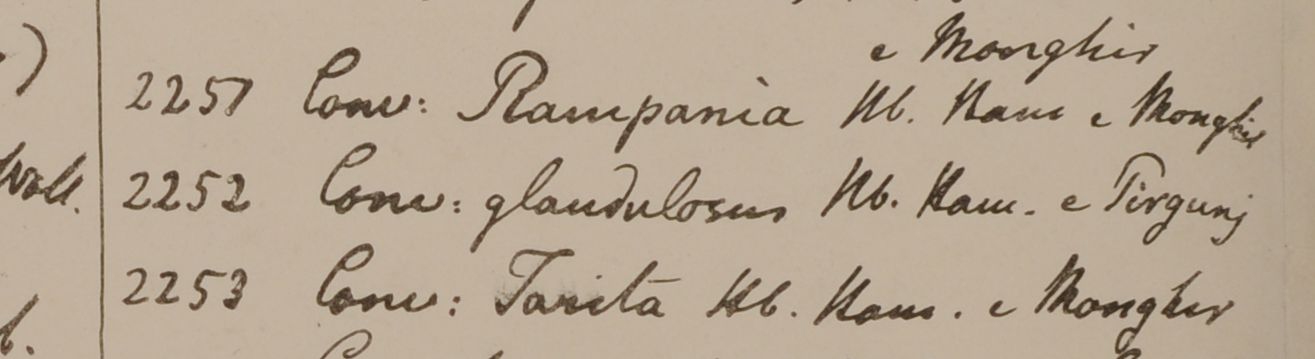 e Monghir
2251 Conv: Rampania Hb. Ham e Monghir
Wall. 2252 Conv: glandulosus Hb. Ham. e Tirgunj
2253 Conv: Tarita Hb. Ham. e Monghir